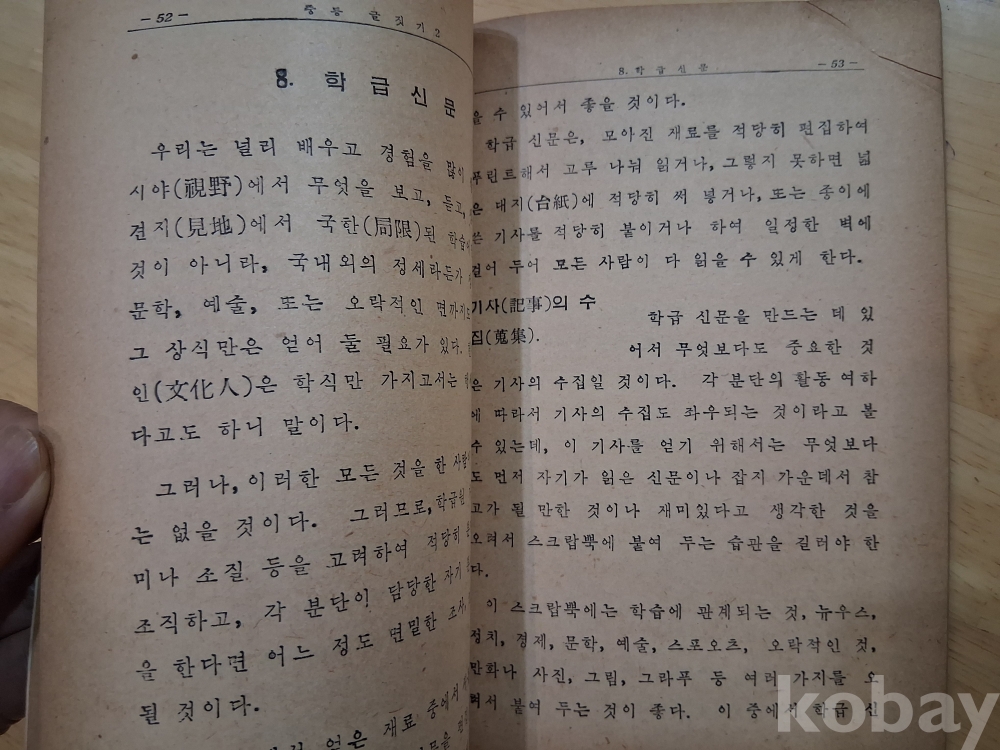 - 52 -
중등 글짓기 2
8. 학급신문
우리는 널리 배우고 경험을 많이
시야(視野)에서 무엇을 보고, 듣고,
견지(見地)에서 국한(局限)된 학습
것이 아니라, 국내외의 정세라든가
문학, 예술, 또는 오락적인 면까지도
그 상식만은 얻어 둘 필요가 있다.
인(文化人)은 학식만 가지고서는
다고도 하니 말이다.
그러나, 이러한 모든 것을 한 사람이
는 없을 것이다. 그러므로, 학급원
미나 소질 등을 고려하여 적당히
조직하고, 각 분단이 담당한 자기
을 한다면 어느 정도 면밀한 조사,
될 것이다.
얻은 재료 중에서
8. 학급신문
- 53 -
을 수 있어서 좋을 것이다.
학급 신문은, 모아진 재료를 적당히 편집하여
푸린트해서 고루 나눠 읽거나, 그렇지 못하면 넓
은 대지(台紙)에 적당히 써 넣거나, 또는 종이에
쓴 기사를 적당히 붙이거나 하여 일정한 벽에
걸어 두어 모든 사람이 다 읽을 수 있게 한다.
기사(記事)의 수
집(蒐集).
학급 신문을 만드는 데 있
어서 무엇보다도 중요한 것
은 기사의 수집일 것이다. 각 분단의 활동 여하
에 따라서 기사의 수집도 좌우되는 것이라고 볼
수 있는데, 이 기사를 얻기 위해서는 무엇보다
도 먼저 자기가 읽은 신문이나 잡지 가운데서 참
고가 될 만한 것이나 재미있다고 생각한 것을
오려서 스크랍뿍에 붙여 두는 습관을 길러야 한
다.
이 스크랍뿍에는 학습에 관계되는 것, 뉴우스,
정치, 경제, 문학, 예술, 스포오츠, 오락적인 것,
만화나 사진, 그림, 그라푸 등 여러 가지를 오
려서 붙여 두는 것이 좋다. 이 중에서 학급 신
kobay